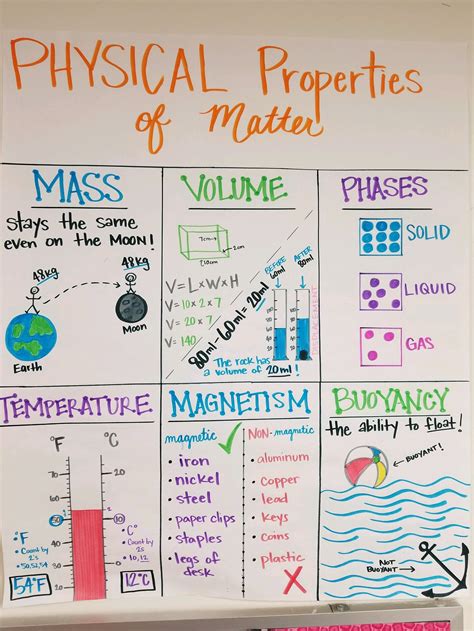 PHYSICAL Properties
of Matter
MASS
stays the same
even on the Moon!
48kg
48kg
Earth
Moon
VOLUME
7cm
2cm
10cm
V=LxWxH
V=10x2x7
V=20x7
V=140
80ml-60ml=20ml
BEFORE
60ml
AFTER
80ml
DISPLACEMENT
The rock has
a volume of 20ml!
PHASES
SOLID
LIQUID
GAS
TEMPERATURE
°F
°C
70
60
50
40
30
20
10
°F
• Count
by 2's
• 50,52,54
54°F
°C
• Count by
2s
• 10, 12
12°C
MAGNETISM
magnetic
• iron
• nickel
• steel
• paper clips
• staples
• legs of
desk
NON-magnetic
• aluminum
• copper
• lead
• keys
• coins
• plastic
BUOYANCY
the ability to float!
BUOYANT!
NOT
BUOYANT